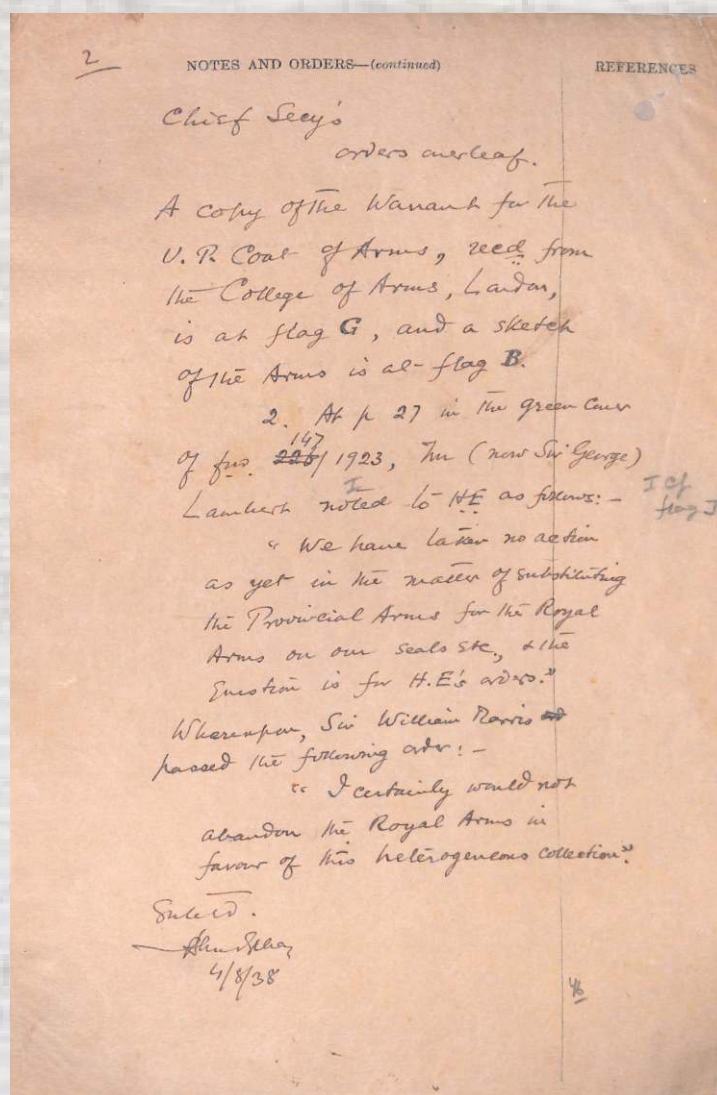 2
NOTES AND ORDERS—(continued)
REFERENCES
Chief Secy's
orders overleaf.
A copy of the Warrant for the
U.P. Coat of Arms, recd from
the College of Arms, London,
is at flag G, and a sketch
of the Arms is at flag B.
2. At p 27 in the green cover
147
of 226/1923, Mr (now Sir George)
Lambert noted to HE as follows:-
I cf
flag I
"We have taken no action
as yet in the matter of substituting
the Provincial Arms for the Royal
Arms on our seals etc., & the
question is for H.E's orders."
Whereupon, Sir William Marris
passed the following order:-
"I certainly would not
abandon the Royal Arms in
favour of this heterogeneous collection".
4/8/38